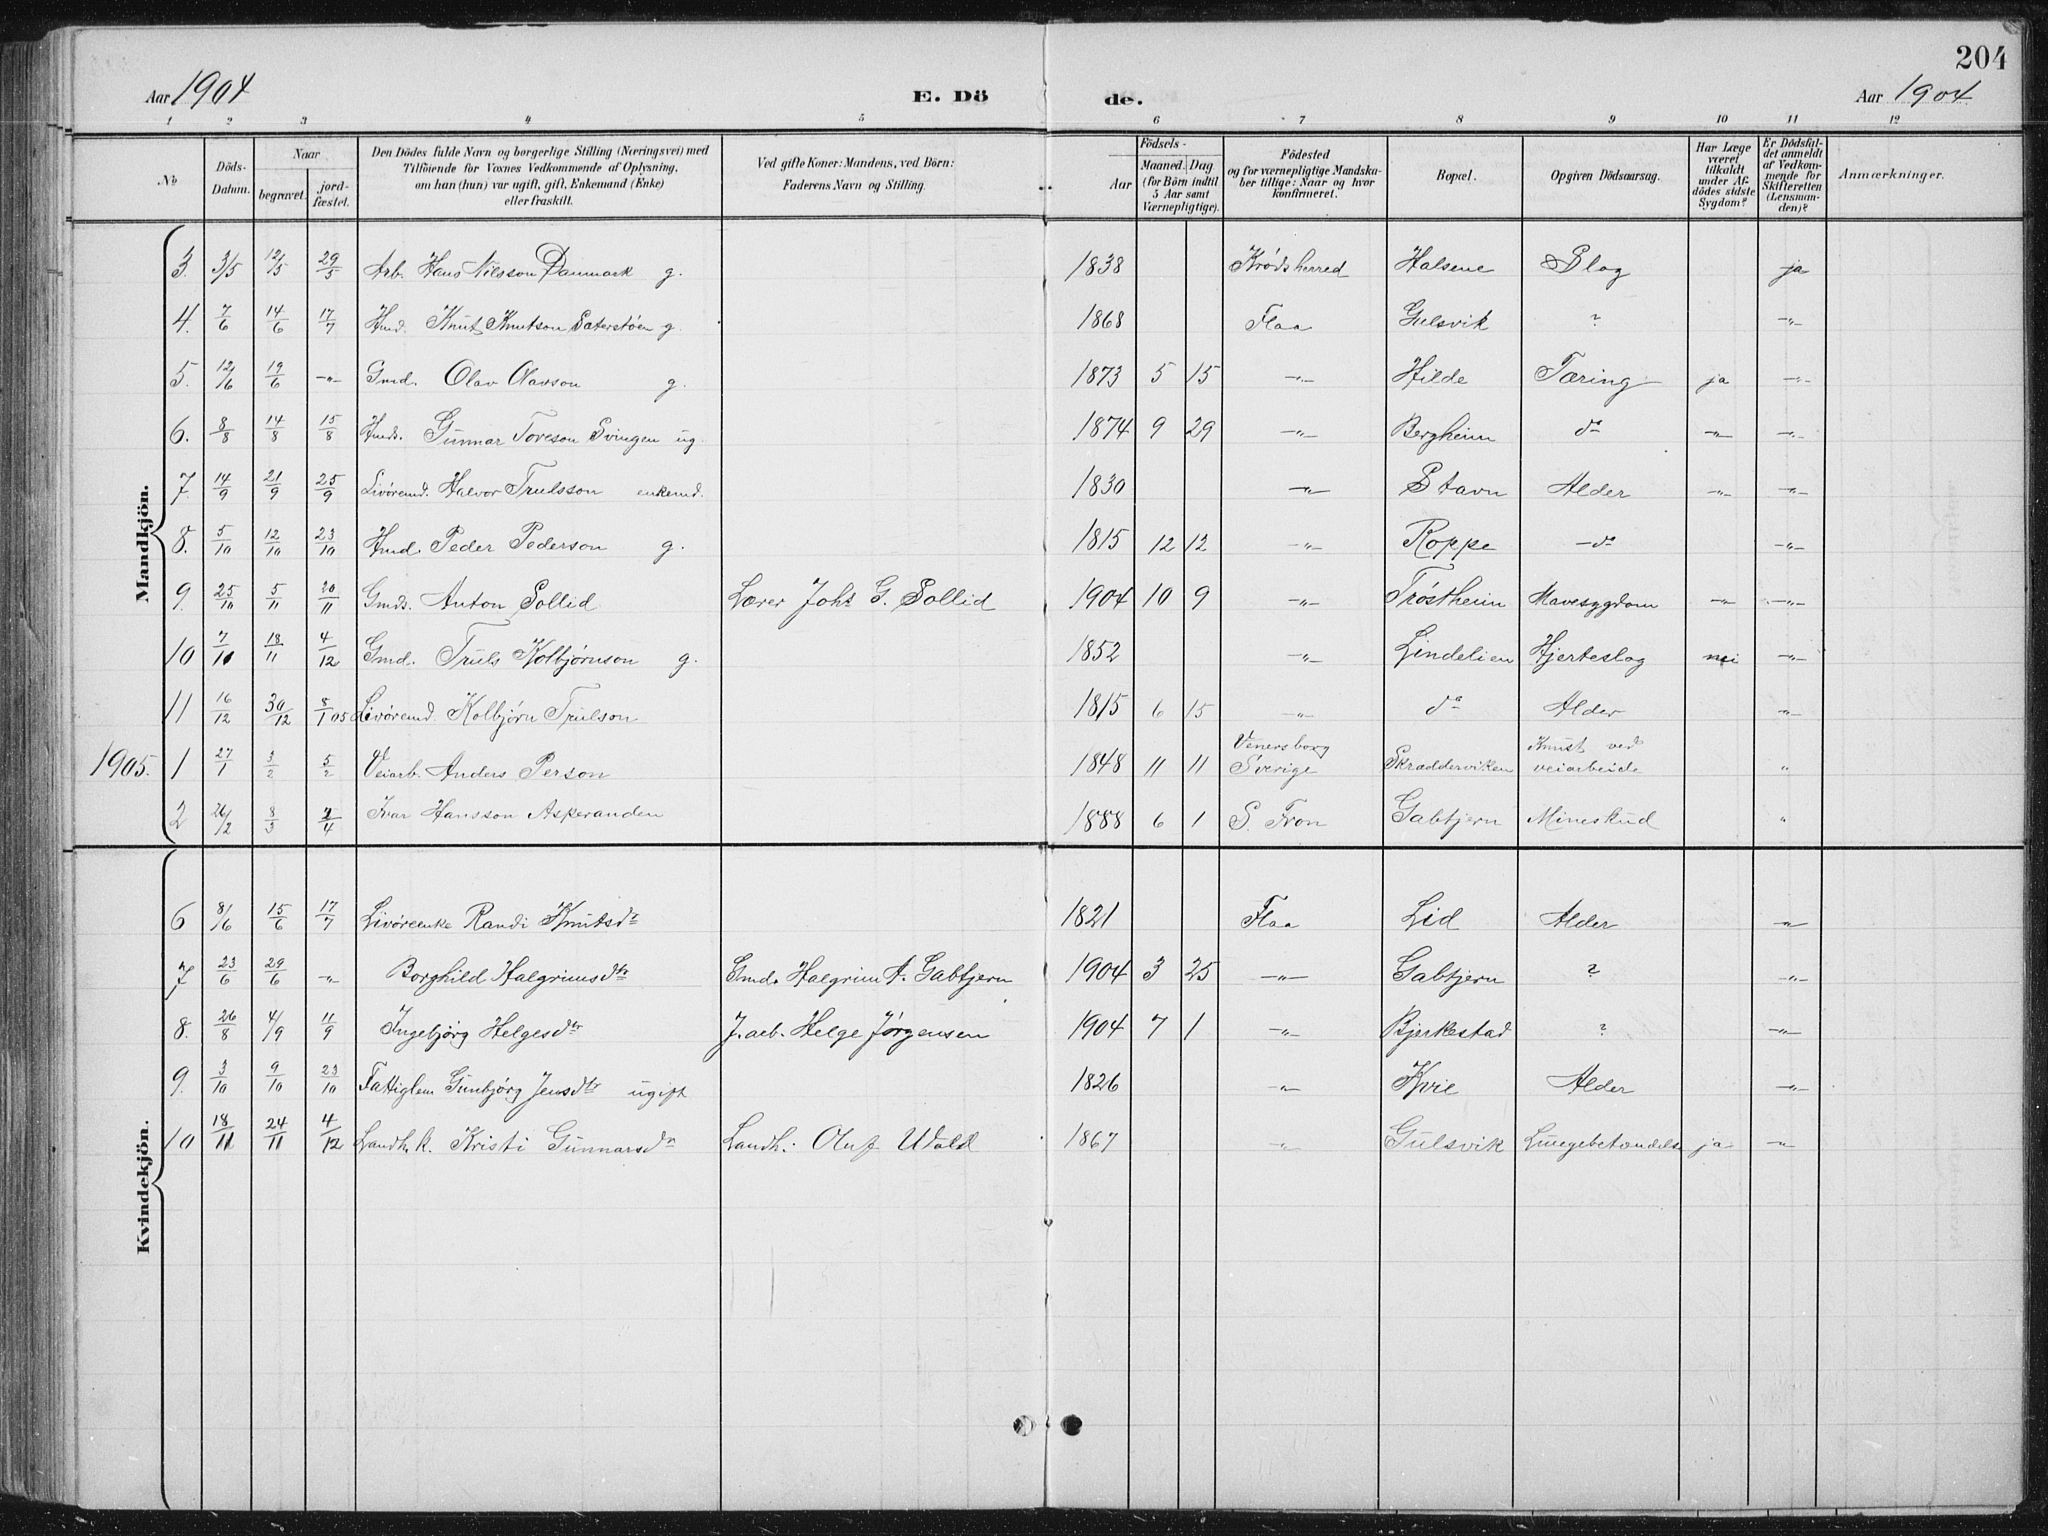 204
Aar 1904 E. Dö de. Aar 1904
1 2 3 4 5 6 7 8 9 10 11 12
No
Döds-Datum.
Naar
begravet.
jord-fæstet.
Den Dödes fulde Navn og borgerlige Stilling (Næringsvei) med
Tilföiende for Voxnes Vedkommende af Oplysning,
om han (hun) var ugift, gift, Enkemand (Enke)
eller fraskilt.
Ved gifte Koner: Mandens, ved Börn:
Faderens Navn og Stilling.
Födsels-
Aar
Maaned. Dag
(for Börn indtil
5 Aar samt
Værnepligtige).
Födested
og for værnepligtige Mandska-
ber tillige: Naar og hvor
konfirmeret.
Bopæl.
Opgiven Dödsaarsag.
Har Læge
været
tilkaldt
under Af-
dödes sidste
Sygdom?
Er Dödsfal-
det anmeldt
af Vedkom-
mende for
Skifteretten
(Lensman-
den)?
Anmærkninger.
Mandkjön.
3. 3/5 12/5 29/5 Arb. Hans Nilsson Danmark g. 1838 Krødsherred Halsene Slag ja
4. 7/6 14/6 17/7 Hmd. Knut Knutson Sæterstøen g. 1868 Flaa Gulsvik ? -"-
5. 12/6 19/6 -"- Gmd. Olav Olavson g. 1873 5 15 -"- Hilde Tæring ja -"-
6. 8/8 14/8 15/8 Hmds. Gunnar Toreson Svingen ug. 1874 9 29 -"- Bergheim do -"- -"-
7. 14/9 21/9 25/9 Livøremd. Halvor Trulsson enkemd. 1830 -"- Stavn Alder -"- -"-
8. 5/10 12/10 23/10 Hmd. Peder Pederson g. 1815 12 12 -"- Roppe -do -"-
9. 25/10 5/11 20/11 Gmds. Anton Sollid Lærer Johs G. Sollid 1904 10 9 -"- Trøstheim Mavesygdom -"- -"-
10 7/11 18/11 4/12 Gmd. Truls Kolbjørnson g. 1852 -"- Lindelien Hjerteslag nei -"-
11 16/12 30/12 8/1 05 Livøremd. Kolbjørn Trulson 1815 6 15 -"- do Alder "
1905. 1 27/1 3/2 5/2 Veiarb. Anders Person 1848 11 11 Venersborg Sverige Skræddervikén Knust ved veiarbeide "
2 26/2 8/3 2/4 Ivar Hansson Askeranden 1888 6 1 S. Fron Gabtjern Mineskud "
Kvindekjön.
6 8/6 15/6 17/7 Livøreenke Randi Knutsdr 1821 Flaa Lid Alder -"-
7 23/6 29/6 " Borghild Halgrimsdtr Gmd. Halgrim A. Gabtjern 1904 3 25 -"- Gabtjern ? -"-
8. 26/8 4/9 11/9 Ingebjørg Helgesdtr J. arb. Helge Jørgensen 1904 7 1 -"- Bjerkestad ? -"-
9. 3/10 9/10 23/10 Fattiglem Gunbjørg Jensdtr ugift 1826 -"- Kvie Alder -"-
10 18/11 24/11 4/12 Landh.k. Kristi Gunnarsdr Landh: Oluf Wold 1867 " Gulsvik Lungebetændelse ja -"-